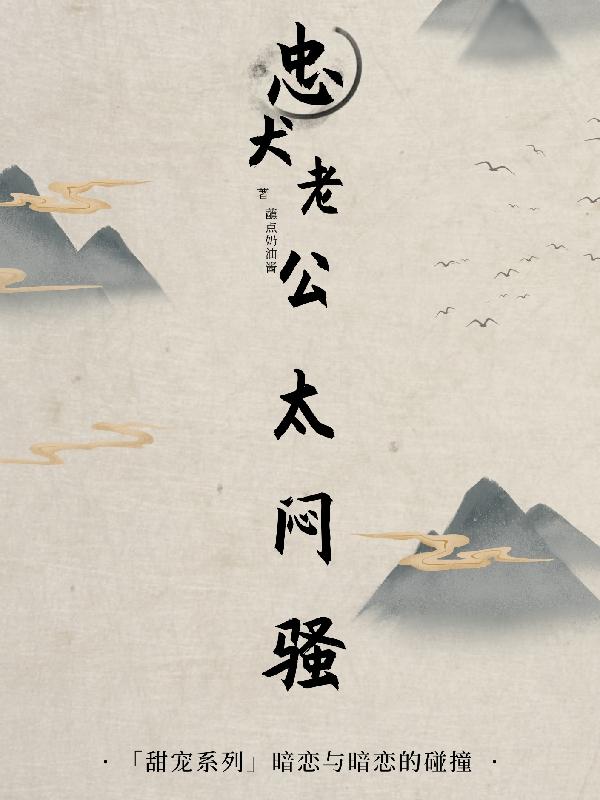 忠犬老公太闷骚
蘸点奶油酱 著
·「甜宠系列」暗恋与暗恋的碰撞·